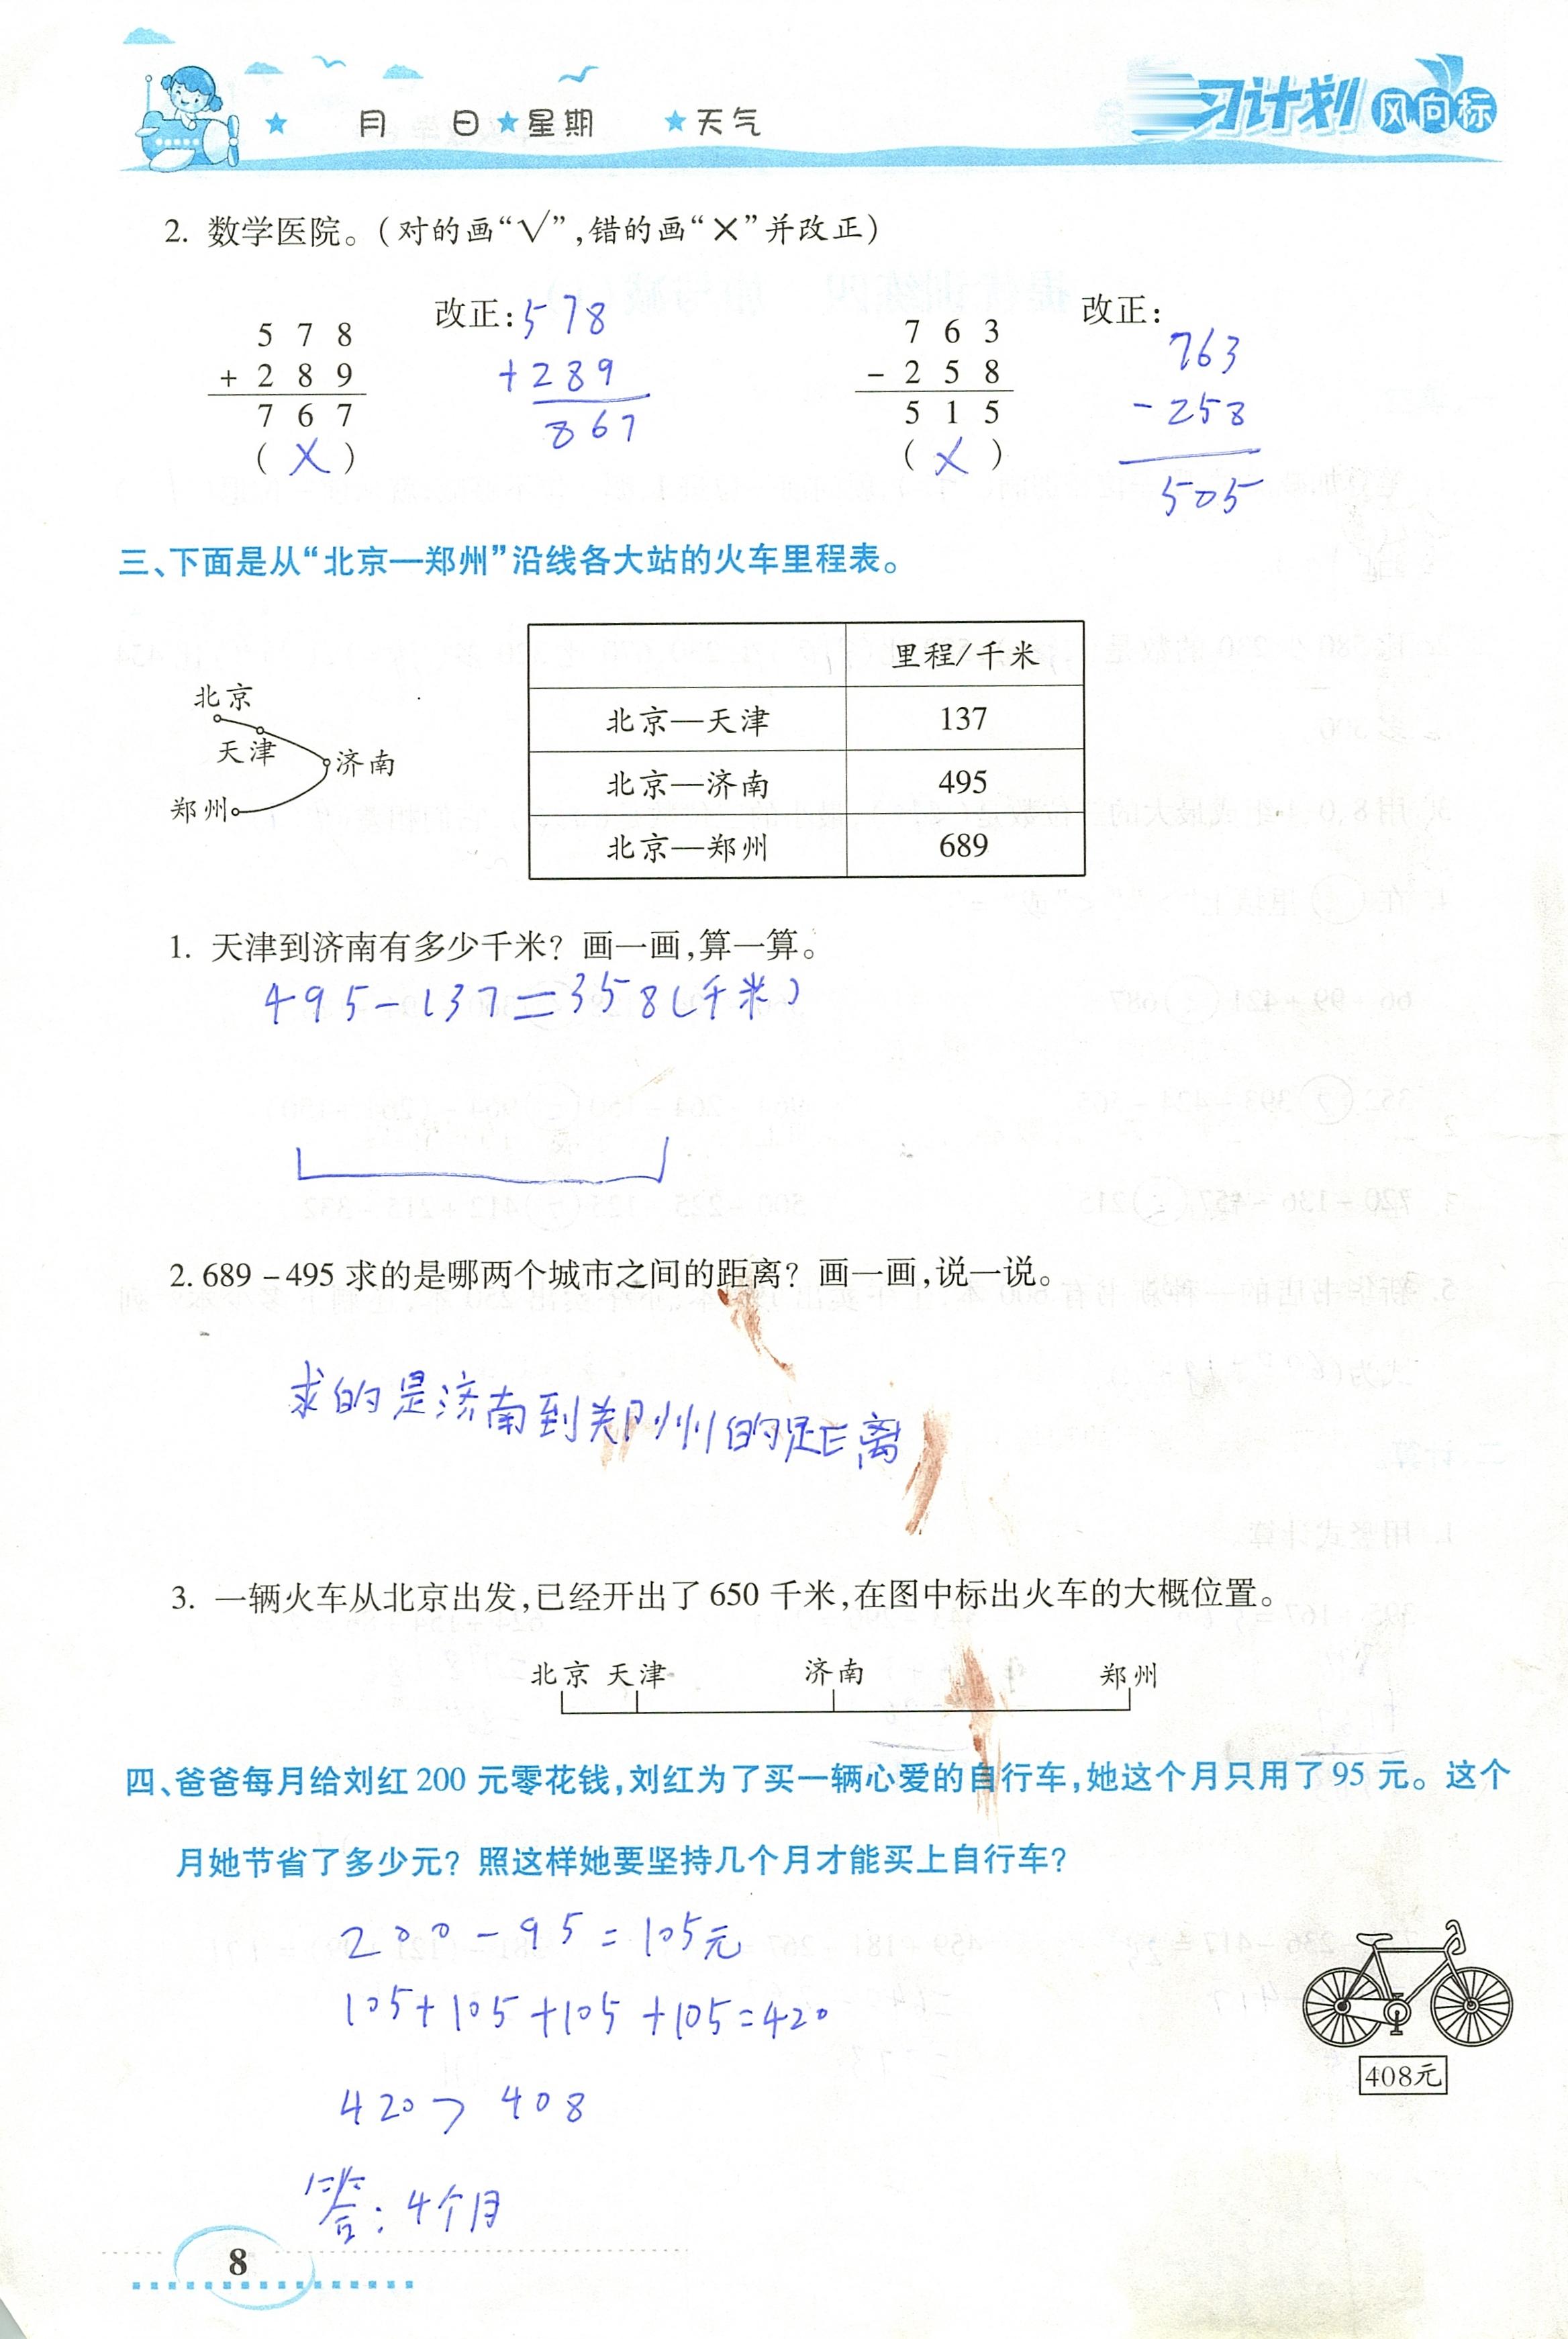 ★ 月 日★星期 ★天气
习计划 风向标
2. 数学医院。(对的画“√”,错的画“×”并改正)
578 改正:578 763 改正:763
+289 +289 -258 -258
767 867 515 505
(X) (X)
三、下面是从“北京—郑州”沿线各大站的火车里程表。
北京
天津
济南
郑州
里程/千米
北京—天津 137
北京—济南 495
北京—郑州 689
1. 天津到济南有多少千米? 画一画,算一算。
495-137=358(千米)
2. 689-495 求的是哪两个城市之间的距离? 画一画,说一说。
求的是济南到郑州的距离
3. 一辆火车从北京出发,已经开出了 650 千米,在图中标出火车的大概位置。
北京 天津 济南 郑州
四、爸爸每月给刘红 200 元零花钱,刘红为了买一辆心爱的自行车,她这个月只用了 95 元。这个
月她节省了多少元? 照这样她要坚持几个月才能买上自行车?
200-95=105元
105+105+105+105=420
420>408
408元
答:4个月
8